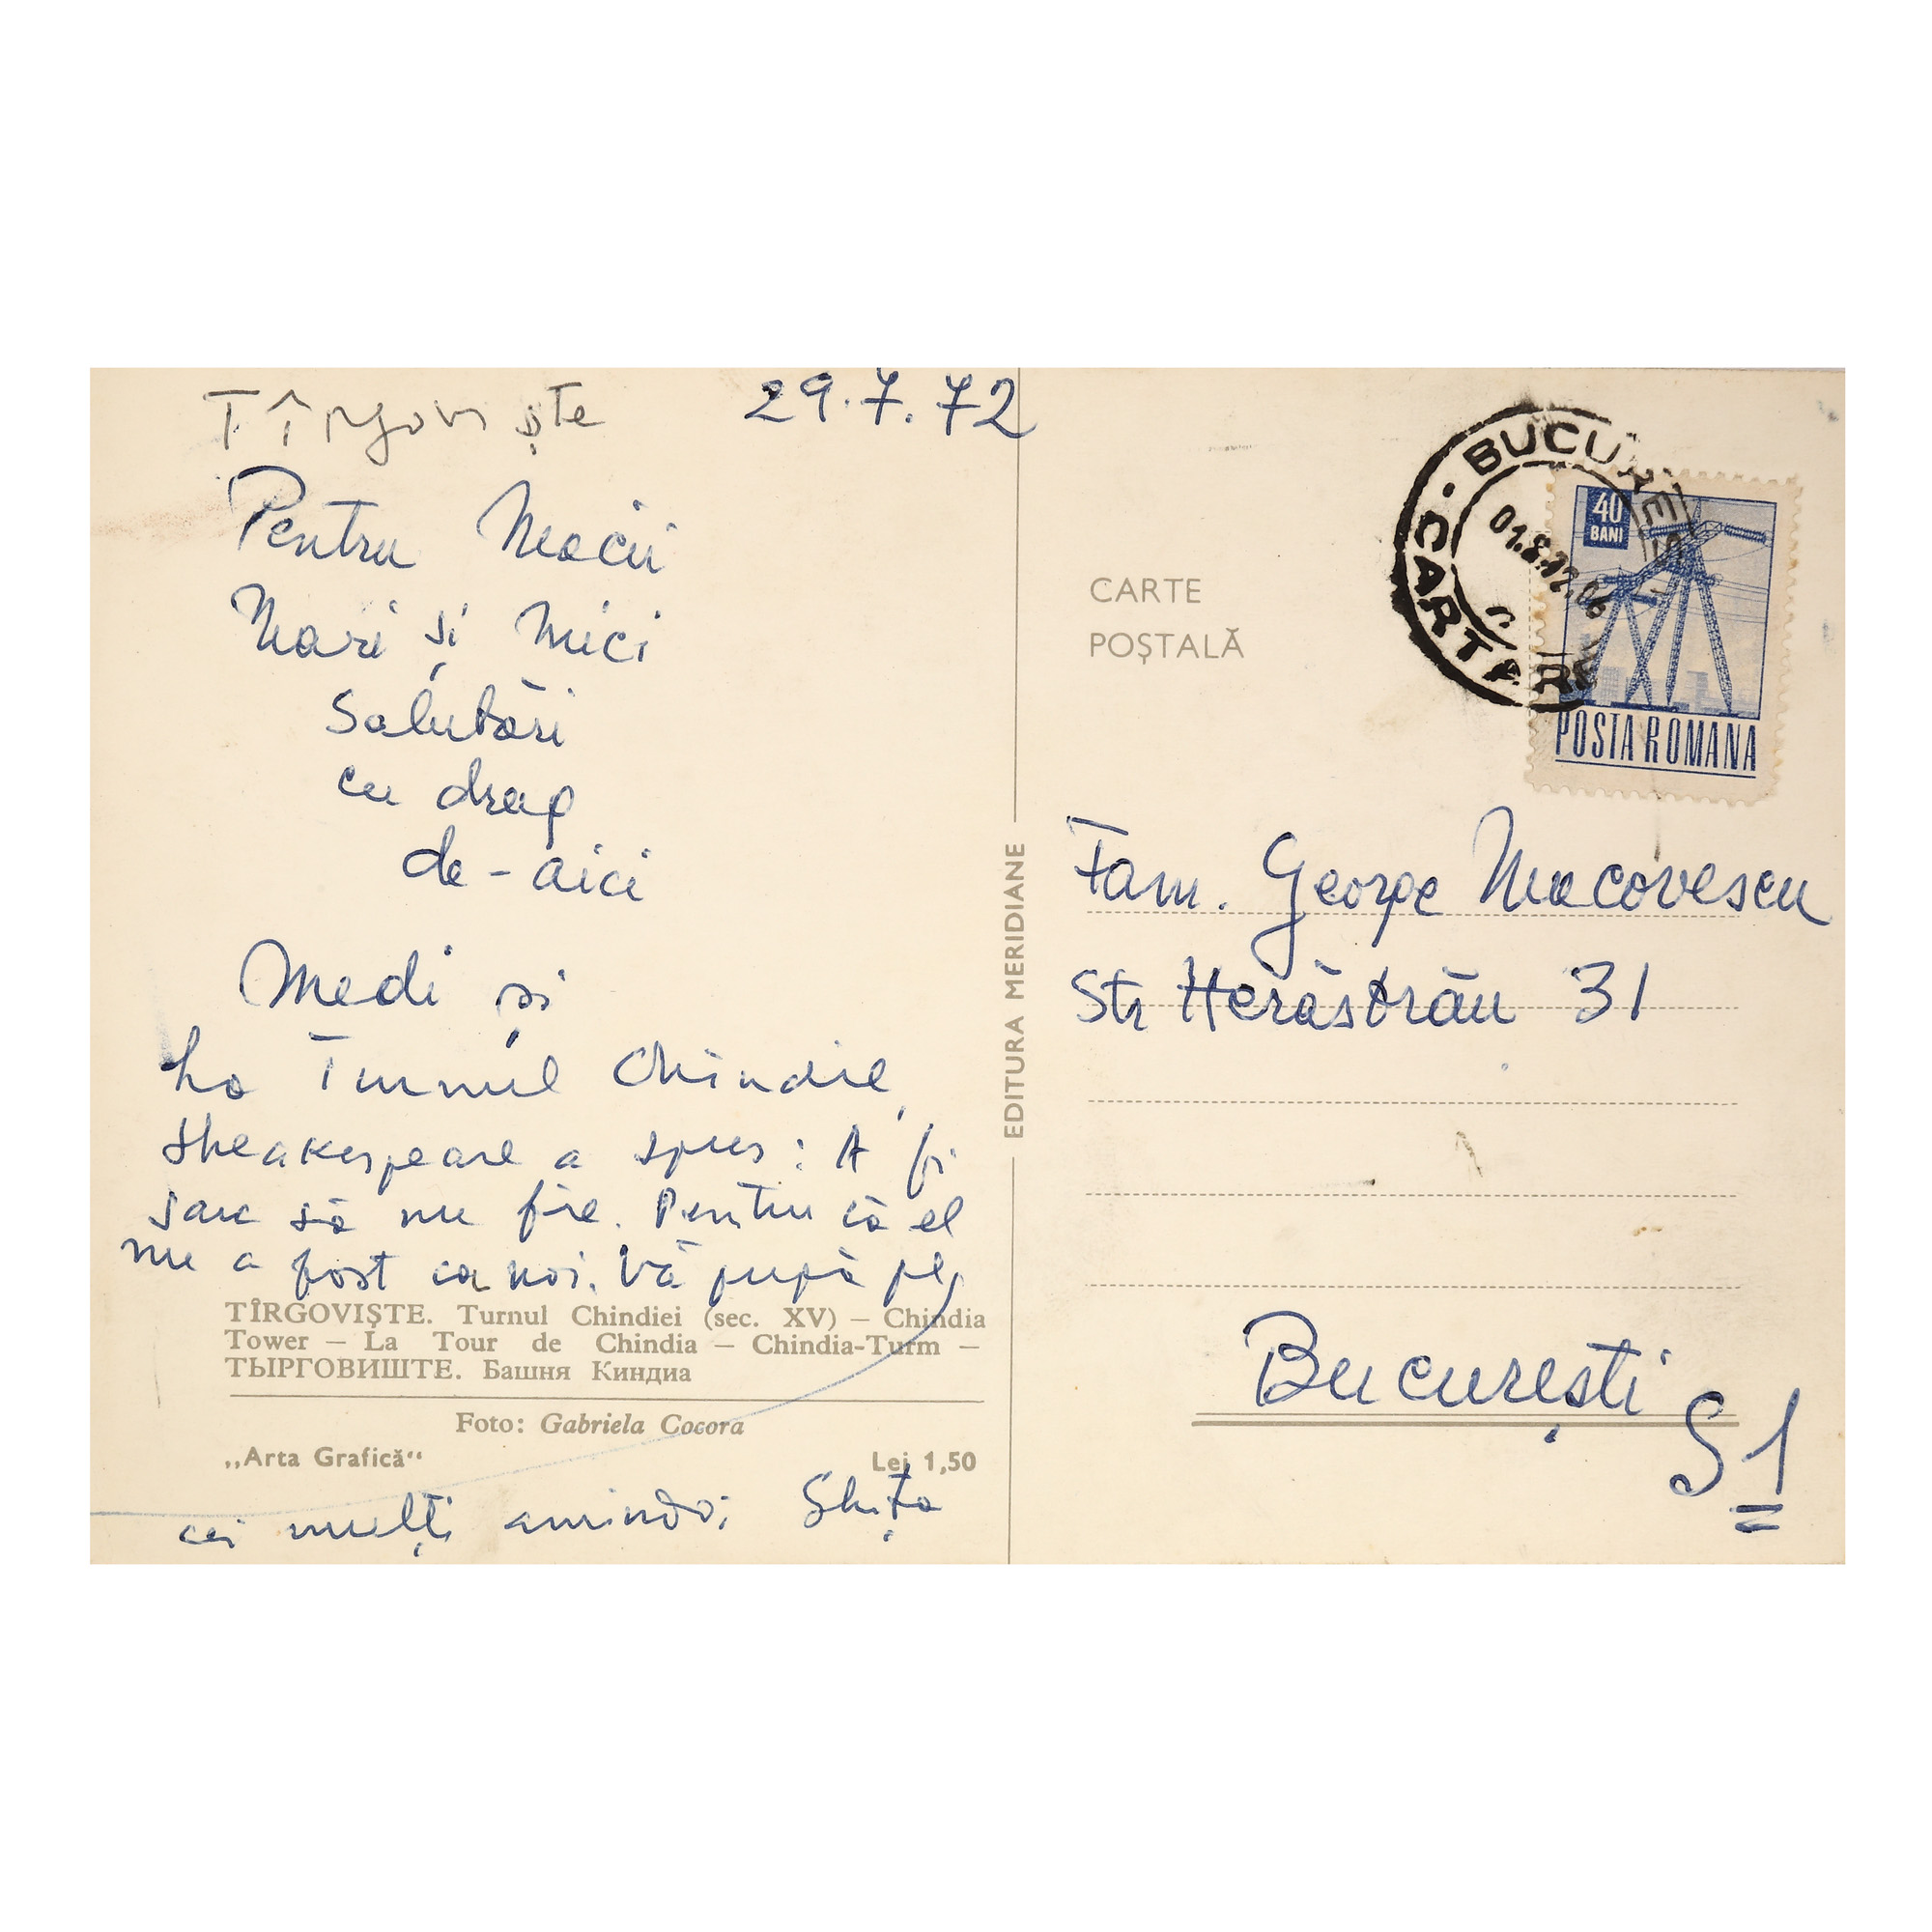 Tîrgoviște 29.7.72
Pentru Macii
Mari și Mici
Salutări
cu drag
de-aici
Medi și
La Turnul Chindiei,
Sheakespeare a spus: A fi
sau să nu fie. Pentru că el
nu a fost ca noi. Vă pupă pe,
TÎRGOVIȘTE. Turnul Chindiei (sec. XV) — Chindia
Tower — La Tour de Chindia — Chindia-Turm —
ТЫРГОВИШТЕ. Башня Киндиа
Foto: Gabriela Cocora
„Arta Grafică“ Lei 1,50
cei mulți amîndoi Ghiță
EDITURA MERIDIANE
CARTE
POȘTALĂ
BUCUREȘTI
01.8.72.06
CARTĂRI
40
BANI
POSTA ROMANA
Fam. George Macovescu
Str Herăstrău 31
București
S1